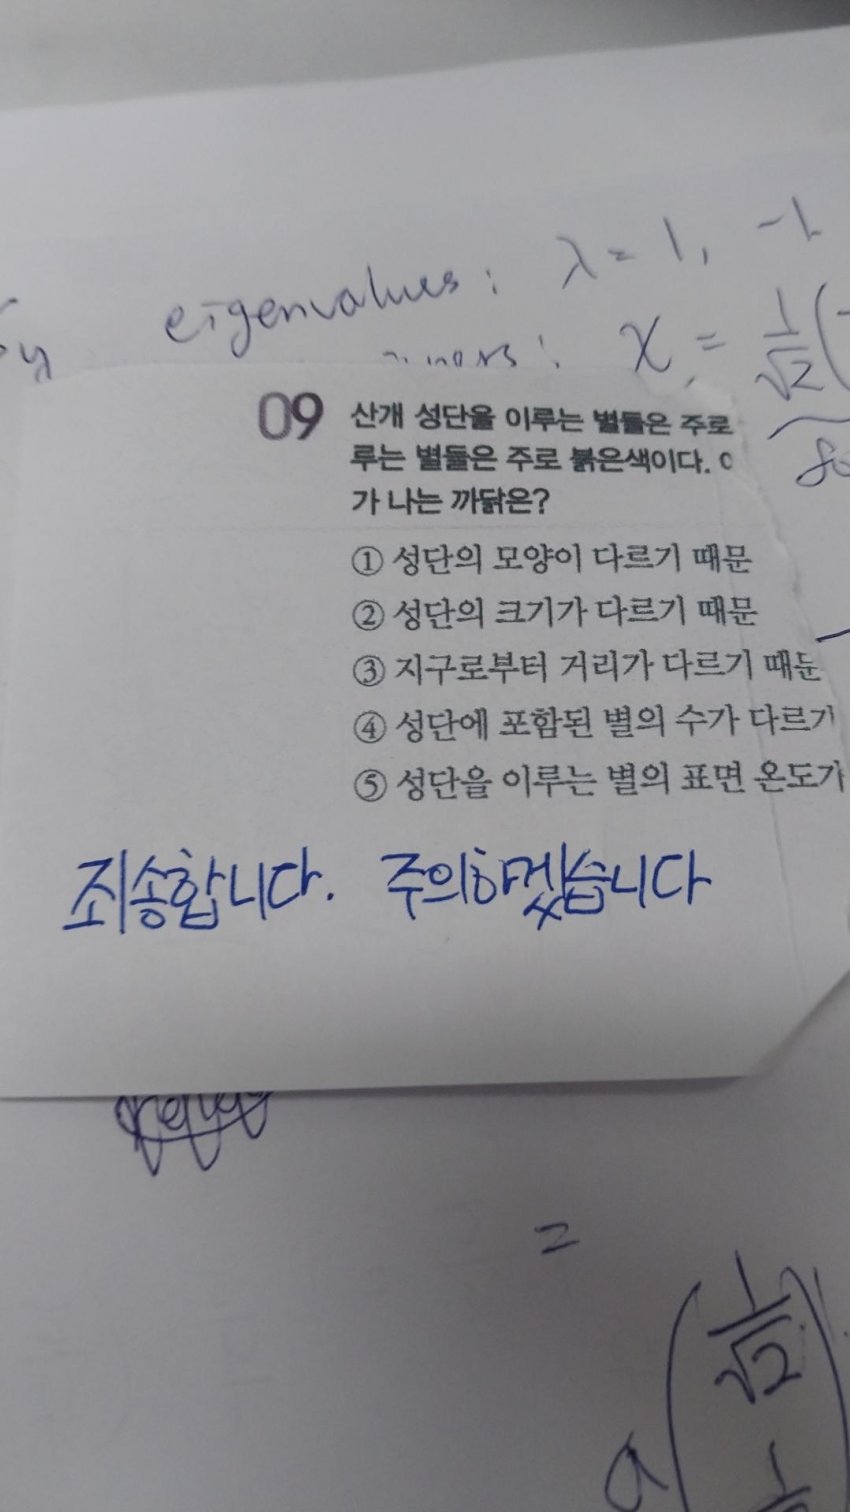 eigenvalues: λ = 1, -1
χ = 1/√2 (
09 산개 성단을 이루는 별들은 주로
루는 별들은 주로 붉은색이다.
가 나는 까닭은?
① 성단의 모양이 다르기 때문
② 성단의 크기가 다르기 때문
③ 지구로부터 거리가 다르기 때문
④ 성단에 포함된 별의 수가 다르기
⑤ 성단을 이루는 별의 표면 온도가
죄송합니다. 주의하겠습니다
=
a ( 1/√2